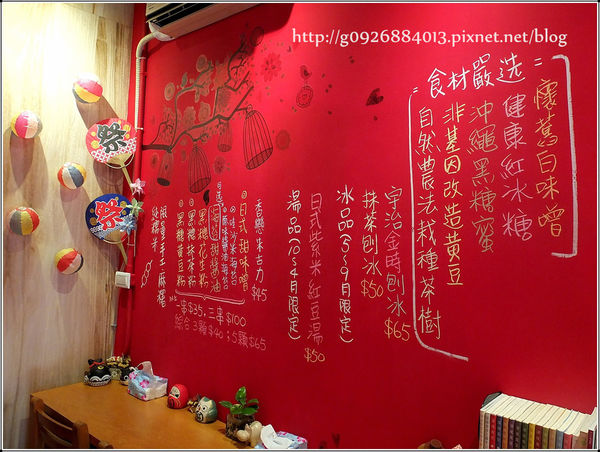 http://g0926884013.pixnet.net/blog
=食材嚴选=
懷舊白味噌
健康紅冰糖
沖繩黑糖蜜
非基因改造黃豆
自然農法栽種茶樹
宇治金時刨冰 $65
抹茶刨冰 $50
冰品(5～9月限定)
日式紫米紅豆湯 $50
湯品(10～4月限定)
香戀朱古力 $45
日式甜味噌
甜醬油
黑糖花生粉
黑糖抹茶粉
黑糖黃豆粉
限量手工麻糬
純糯米
一串$35,三串$100
綜合3顆$40;5顆$65
祭
祭